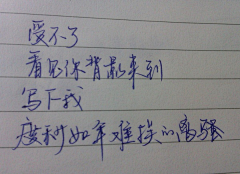 受不了
看见你背影来到
写下我
度秒如年难挨的离骚